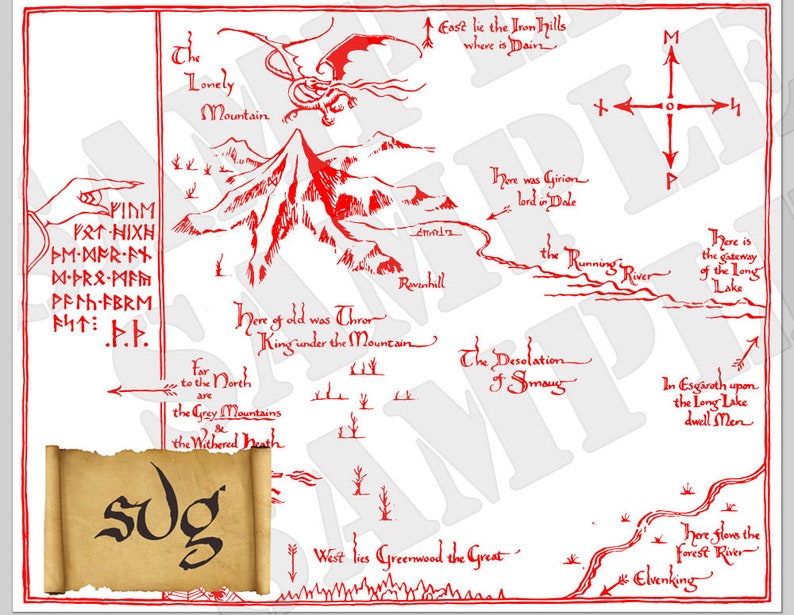 East lie the Iron Hills
where is Dain
The
Lonely
Mountain
ᛖ
ᚾ ᛋ
ᚹ
ᚠᛁᚢᛖ
ᚻᛁᚷᚻ
ᚦᛖ᛫ᚪᚾ
ᛞ᛫ᛗᚪᚣ
ᚹᚪᛚᚳ᛫ᚪጒᚱᛖ
ᚪᛋᛏ᛬
᛫ᚦ᛫ᚦ᛫
Here was Girion
lord in Dale
the Running River
Here is
the gateway
of the Long
Lake
Ravenhill
Here of old was Thror
King under the Mountain
The Desolation
of Smaug
Far
to the North
are
the Grey Mountains
&
the Withered Heath
In Esgaroth upon
the Long Lake
dwell Men
svg
West lies Greenwood the Great
Here flows the
Forest River
Elvenking
SAMPLE
SAMPLE
SAMPLE
SAMPLE